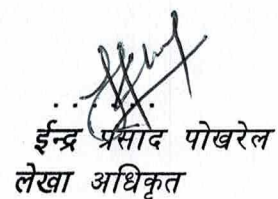 ईन्द्र प्रसाद पोखरेल
लेखा अधिकृत